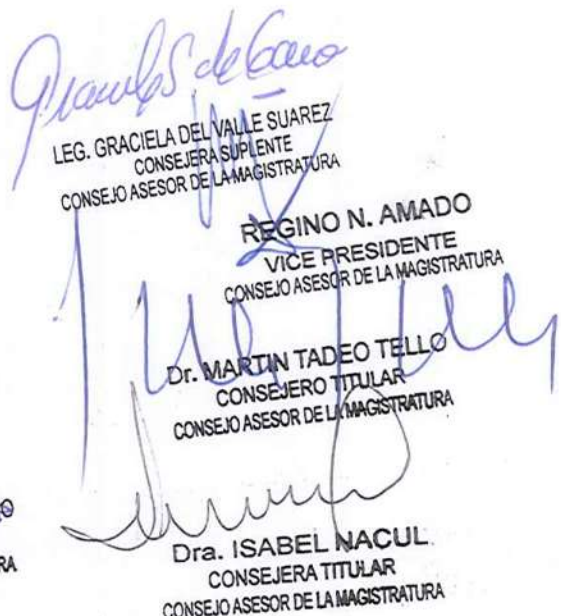 LEG. GRACIELA DEL VALLE SUAREZ
CONSEJERA SUPLENTE
CONSEJO ASESOR DE LA MAGISTRATURA
REGINO N. AMADO
VICE PRESIDENTE
CONSEJO ASESOR DE LA MAGISTRATURA
Dr. MARTIN TADEO TELLO
CONSEJERO TITULAR
CONSEJO ASESOR DE LA MAGISTRATURA
Dra. ISABEL NACUL
CONSEJERA TITULAR
CONSEJO ASESOR DE LA MAGISTRATURA